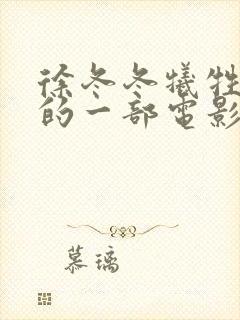 徐冬冬犠牲
的一部电影
慕璃